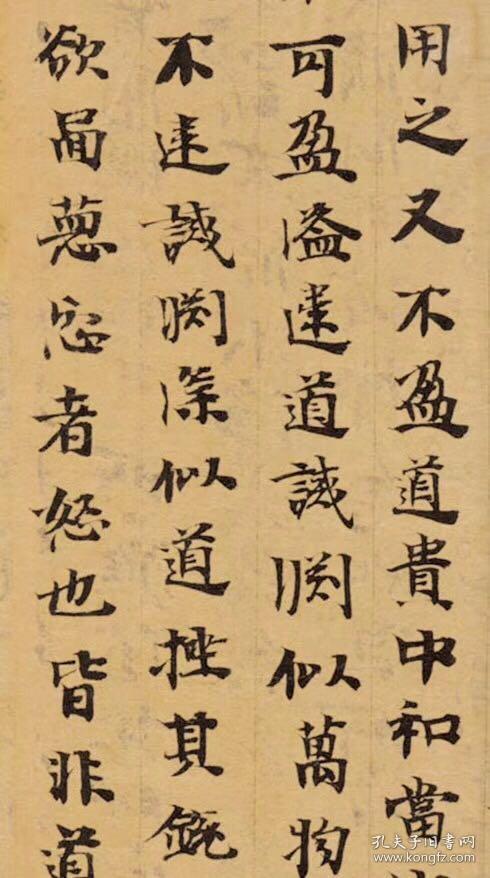 用之又不盈道貴中和當
可盈溢違道誡渕似萬物
不違誡渕深似道挫其銳
欲啚惡忿者怒也皆非道
孔夫子旧书网
www.kongfz.com